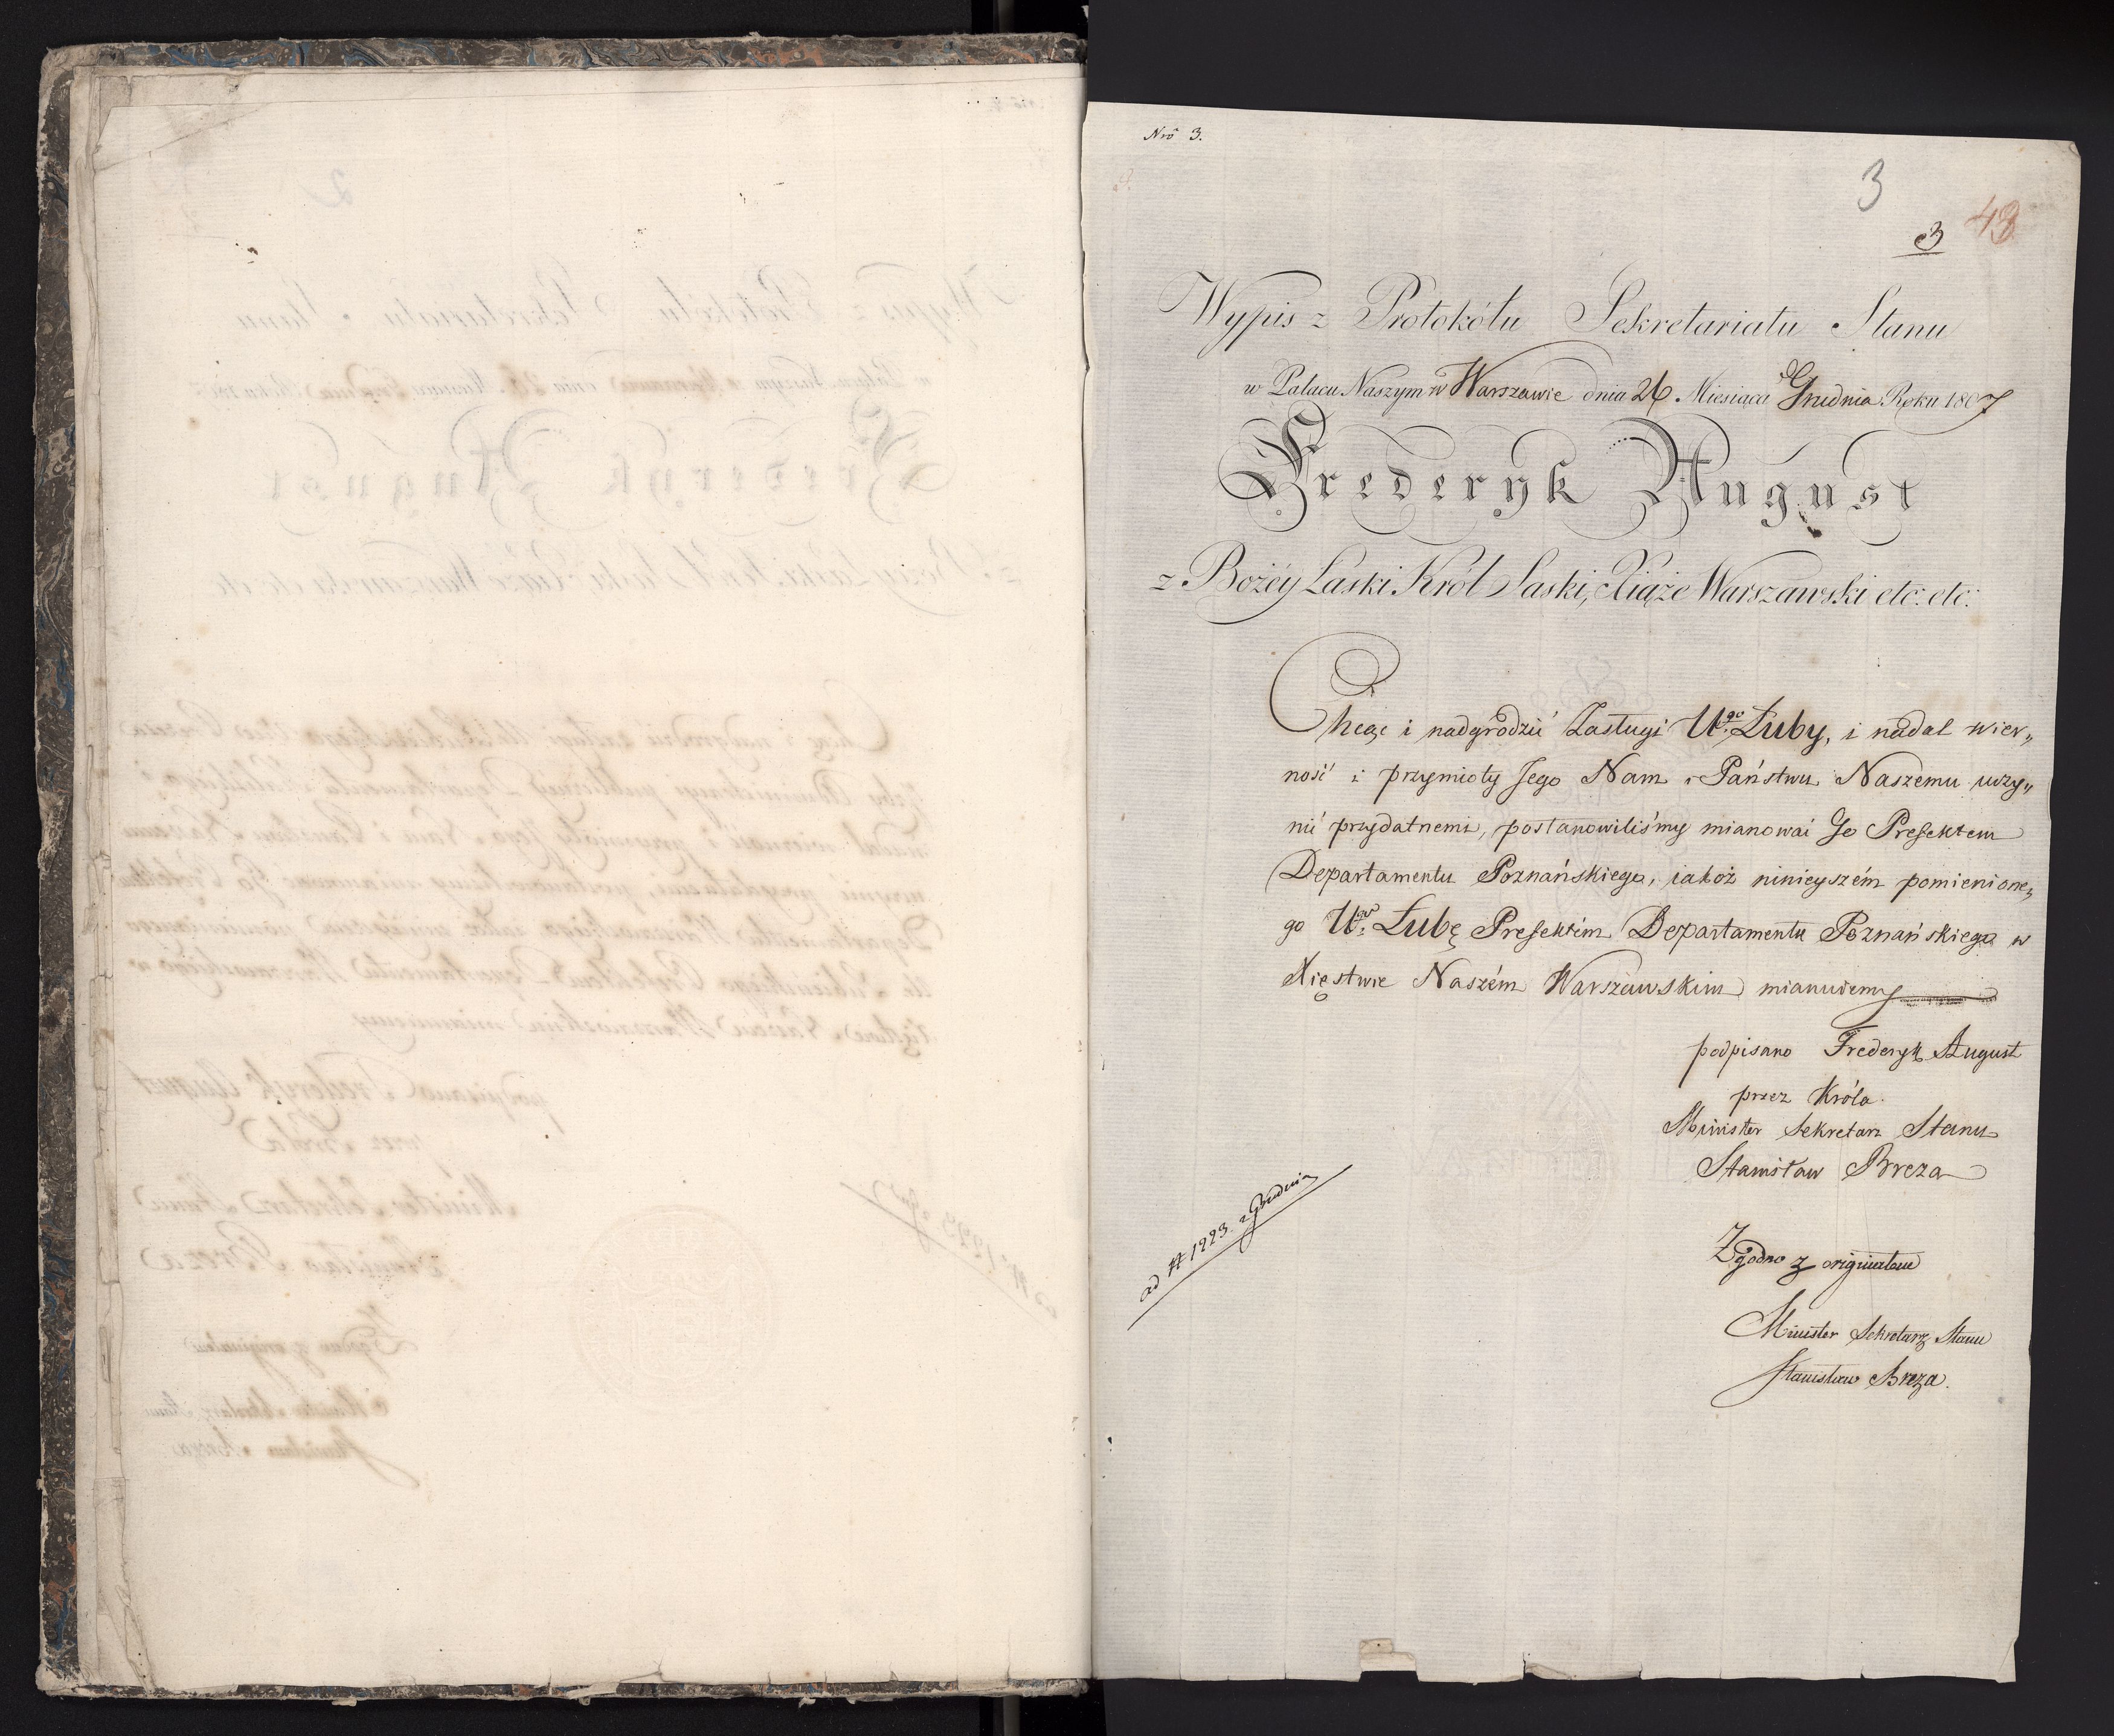 Nrō 3.
3
3 43
Wypis z Protokółu Sekretariatu Stanu
w Pałacu Naszym w Warszawie dnia 26 Miesiąca Grudnia Roku 1807
Frederyk August
z Bożéy Łaski Król Saski, Xiąże Warszawski etc: etc:
Chcąc i nadgrodzić Zasługi Ugo. Łuby, i nadal wier„
ność i przymioty Jego Nam i Państwu Naszemu uczy„
nić przydatnemi, postanowiliśmy mianować Go Prefektem
Departamentu Poznańskiego, iakoż ninieyszém pomienione„
go Ugo. Łubę Prefektem Departamentu Poznańskiego w
Xięstwie Naszém Warszawskim mianuiemy
podpisano Frederyk August
przez Króla.
Minister Sekretarz Stanu
Stanisław Breza
ad # 1223. z Grudnia
Zgodno z originałem
Minister Sekretarz Stanu
Stanisław Breza.